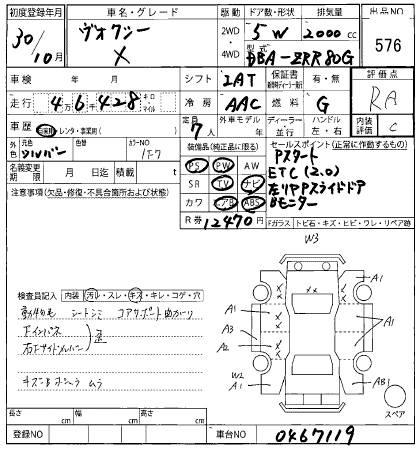 初度登録年月 車名・グレード 駆動 ドア数・形状 排気量 出品NO
30/10月 ヴォクシー X 2WD 4WD 5W 2000cc 576
型式 DBA-ZRR80G
車検 年 月 シフト IAT 保証書 有・無 評価点 RA
走行 4万6千428 キロ・マイル 冷房 AAC 燃料 G
車歴 自家用・レンタ・事業用( ) 定員 7人 外車モデル年 ディーラー・並行 ハンドル 左・右 内装評価 C
外色 元色 シルバー カラーNO 1F7
装備品(純正品に限る) セールスポイント(正常に作動するもの)
名義変更期限 月 日迄 積載 t
PS PW AW
SR TV ナビ
カワ エアB ABS
R券 12470円
Pスタート
ETC(2.0)
左リヤPスライドドア
Bモニター
注意事項(欠品・修復・不具合箇所および状態)
Fガラス トビ石・キズ・ヒビ・ワレ・リペア跡
W3
A1 A1 A3 A2 W2 A1 A1 AB1
スペア
検査員記入 内装 汚レ・スレ・キズ・キレ・コゲ・穴
シートシミ コアサポート曲がり
下インパネ
右下サイドメンバー
長さ cm 幅 cm 高さ cm
登録NO 車台NO 0467119